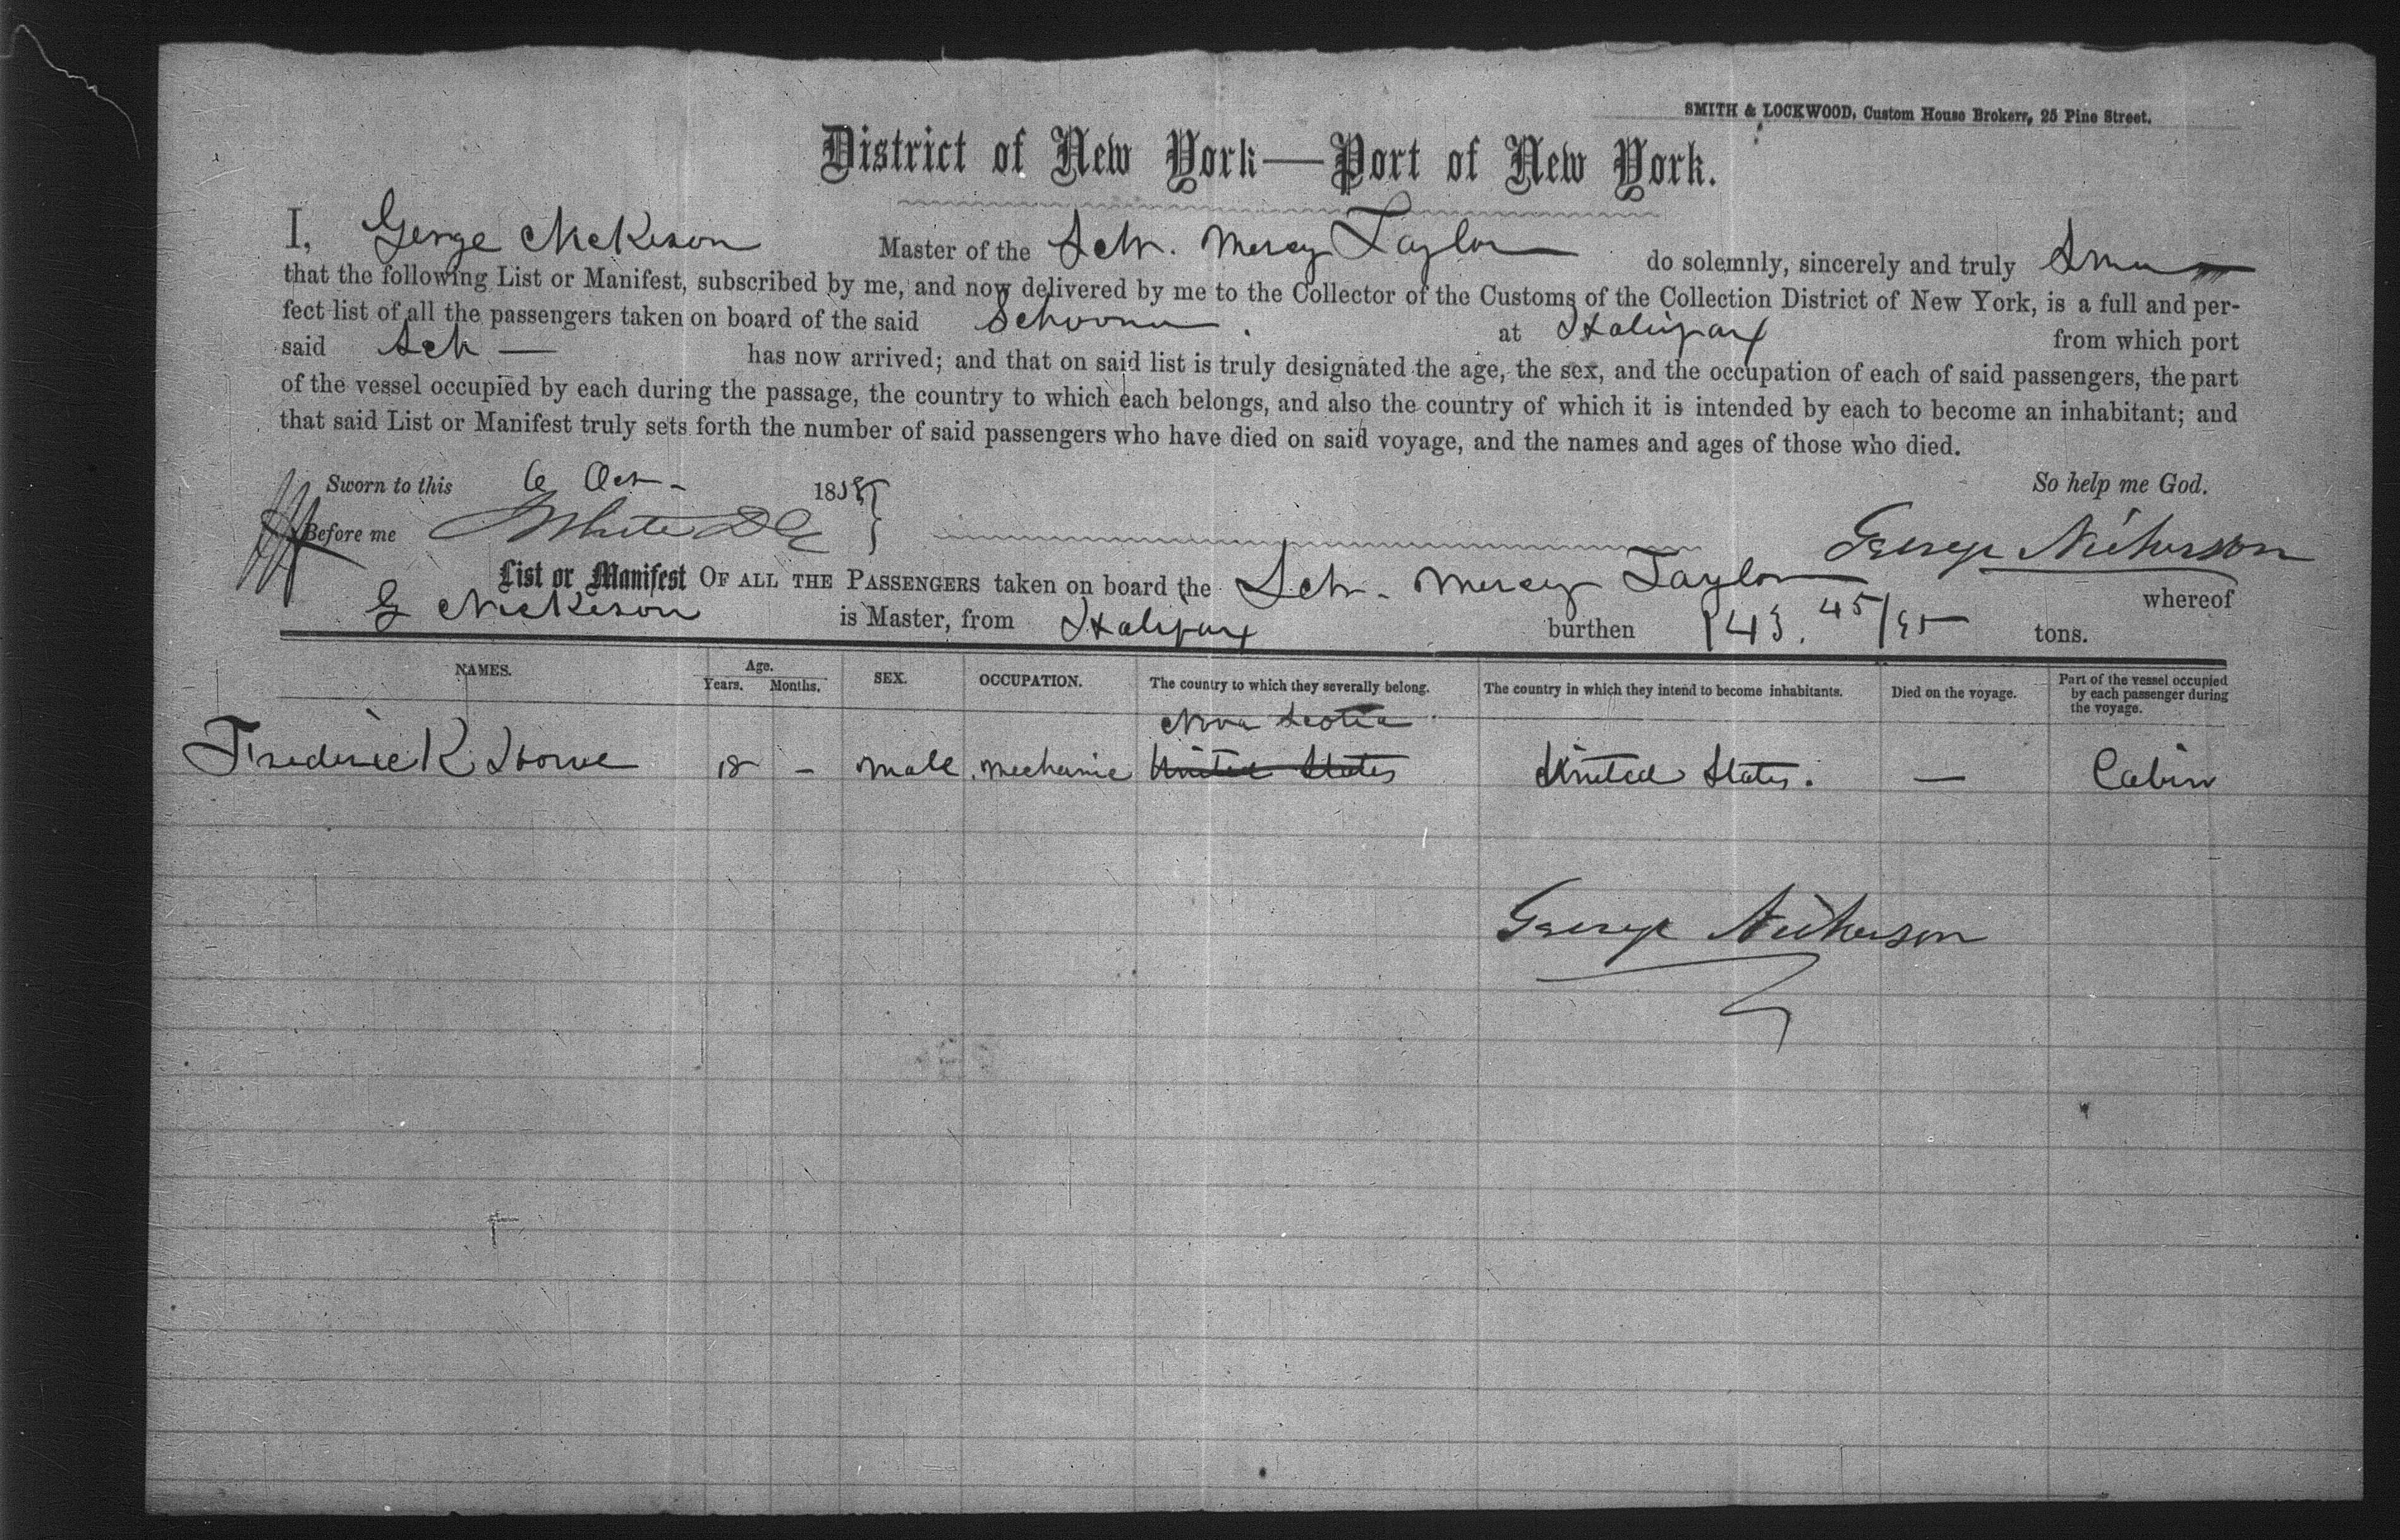 SMITH & LOCKWOOD, Custom House Brokers, 25 Pine Street.
District of New York—Port of New York.
I, George Nickeson Master of the Schr. Mercy Taylor do solemnly, sincerely and truly
that the following List or Manifest, subscribed by me, and now delivered by me to the Collector of the Customs of the Collection District of New York, is a full and per-
fect list of all the passengers taken on board of the said Schooner at Halifax from which port
said Sch — has now arrived; and that on said list is truly designated the age, the sex, and the occupation of each of said passengers, the part
of the vessel occupied by each during the passage, the country to which each belongs, and also the country of which it is intended by each to become an inhabitant; and
that said List or Manifest truly sets forth the number of said passengers who have died on said voyage, and the names and ages of those who died.
Sworn to this 6 Oct - 18 So help me God.
Before me White George Nickerson
List or Manifest OF ALL THE PASSENGERS taken on board the Schr. Mercy Taylor whereof
G Nickeson is Master, from Halifax burthen 143. 45/95 tons.
NAMES. Age. Years. Months. SEX. OCCUPATION. The country to which they severally belong. The country in which they intend to become inhabitants. Died on the voyage. Part of the vessel occupied by each passenger during the voyage.
Nova Scotia
Frederick Howe 18 – Male Mechanic United States United States. — Cabin
George Nickerson